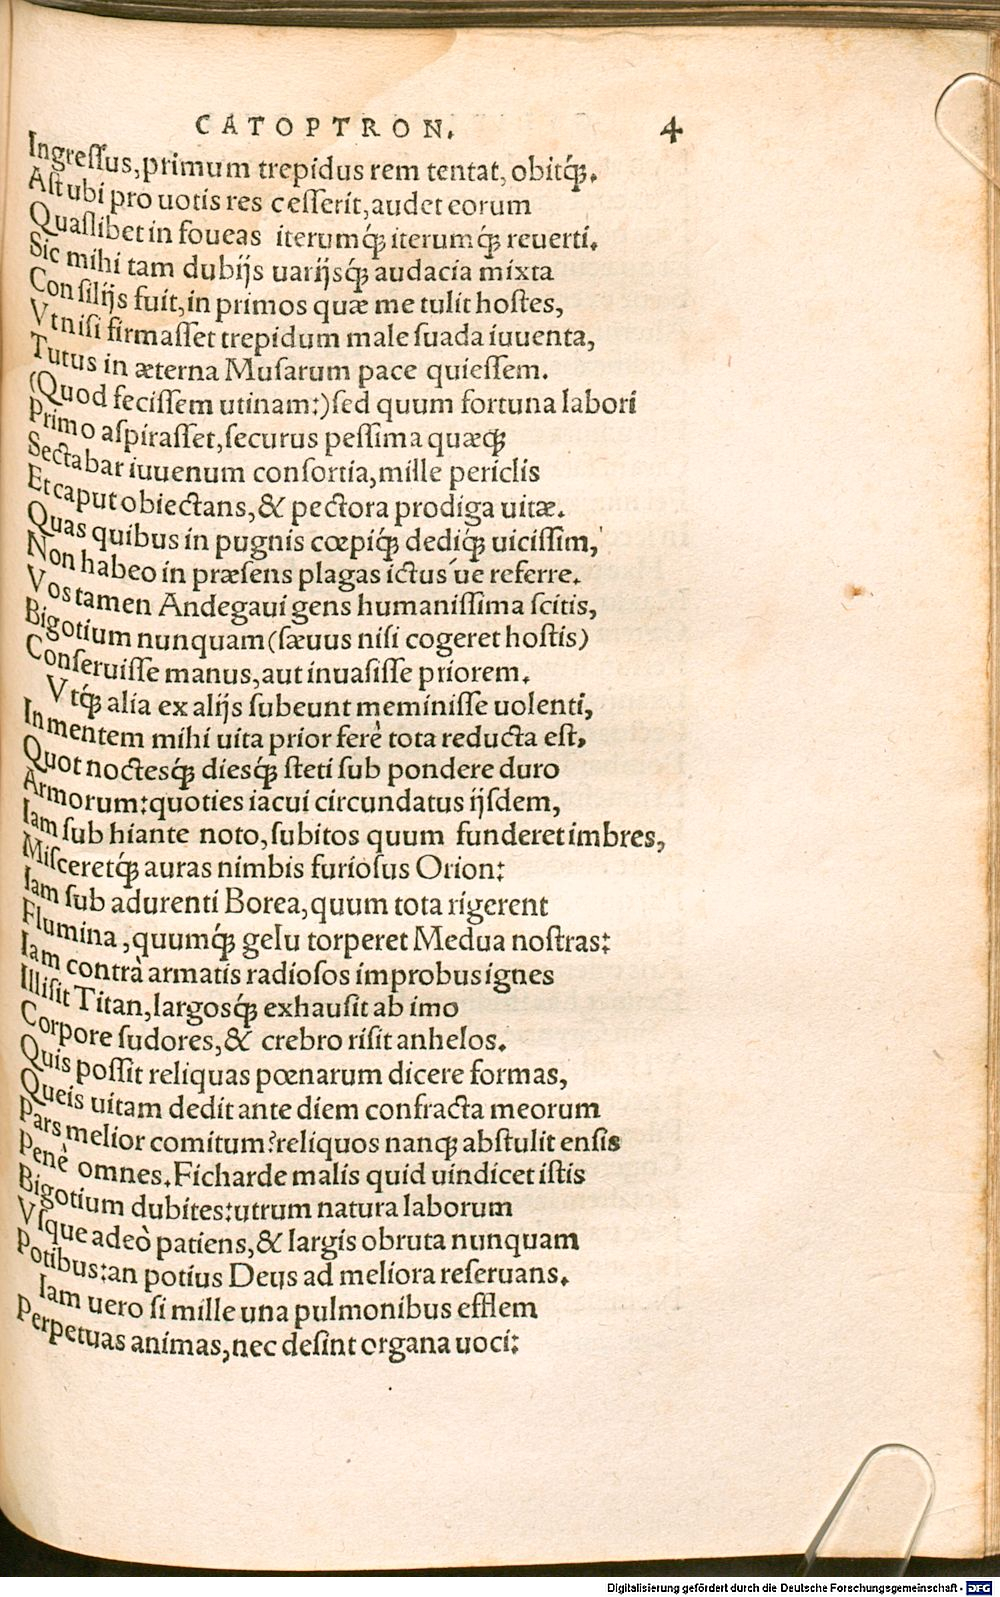 CATOPTRON. 4
Ingreſſus, primum trepidus rem tentat, obitq́;.
Aſt ubi pro uotis res ceſſerit, audet eorum
Quaslibet in foueas iterumq́; iterumq́; reuerti.
Sic mihi tam dubijs uarijsq́; audacia mixta
Conſilijs fuit, in primos quæ me tulit hoſtes,
Vt niſi firmaſſet trepidum male ſuada iuuenta,
Tutus in æterna Muſarum pace quieſſem.
(Quod feciſſem utinam:) ſed quum fortuna labori
Primo aſpiraſſet, ſecurus peſſima quæq́;
Sectabar iuuenum conſortia, mille periclis
Et caput obiectans, & pectora prodiga uitæ.
Quas quibus in pugnis cœpiq́; dediq́; uiciſſim,
Non habeo in præſens plagas ictus'ue referre.
Vos tamen Andegaui gens humaniſſima ſcitis,
Bigotium nunquam (ſæuus niſi cogeret hoſtis)
Conſeruiſſe manus, aut inuaſiſſe priorem.
Vtq́; alia ex alijs ſubeunt meminiſſe uolenti,
In mentem mihi uita prior ferè tota reducta eſt,
Quot noctesq́; diesq́; ſteti ſub pondere duro
Armorum: quoties iacui circundatus ijſdem,
Iam ſub hiante noto, ſubitos quum funderet imbres,
Miſceretq́; auras nimbis furioſus Orion:
Iam ſub adurenti Borea, quum tota rigerent
Flumina, quumq́; gelu torperet Medua noſtras:
Iam contrà armatis radioſos improbus ignes
Illiſit Titan, largosq́; exhauſit ab imo
Corpore ſudores, & crebro riſit anhelos.
Quis poſſit reliquas pœnarum dicere formas,
Queis uitam dedit ante diem confracta meorum
Pars melior comitum? reliquos nanq; abſtulit enſis
Penè omnes. Ficharde malis quid uindicet iſtis
Bigotium dubites: utrum natura laborum
Vſque adeò patiens, & largis obruta nunquam
Potibus: an potius Deus ad meliora reſeruans.
Iam uero ſi mille una pulmonibus efflem
Perpetuas animas, nec deſint organa uoci:
Digitalisierung gefördert durch die Deutsche Forschungsgemeinschaft - DFG